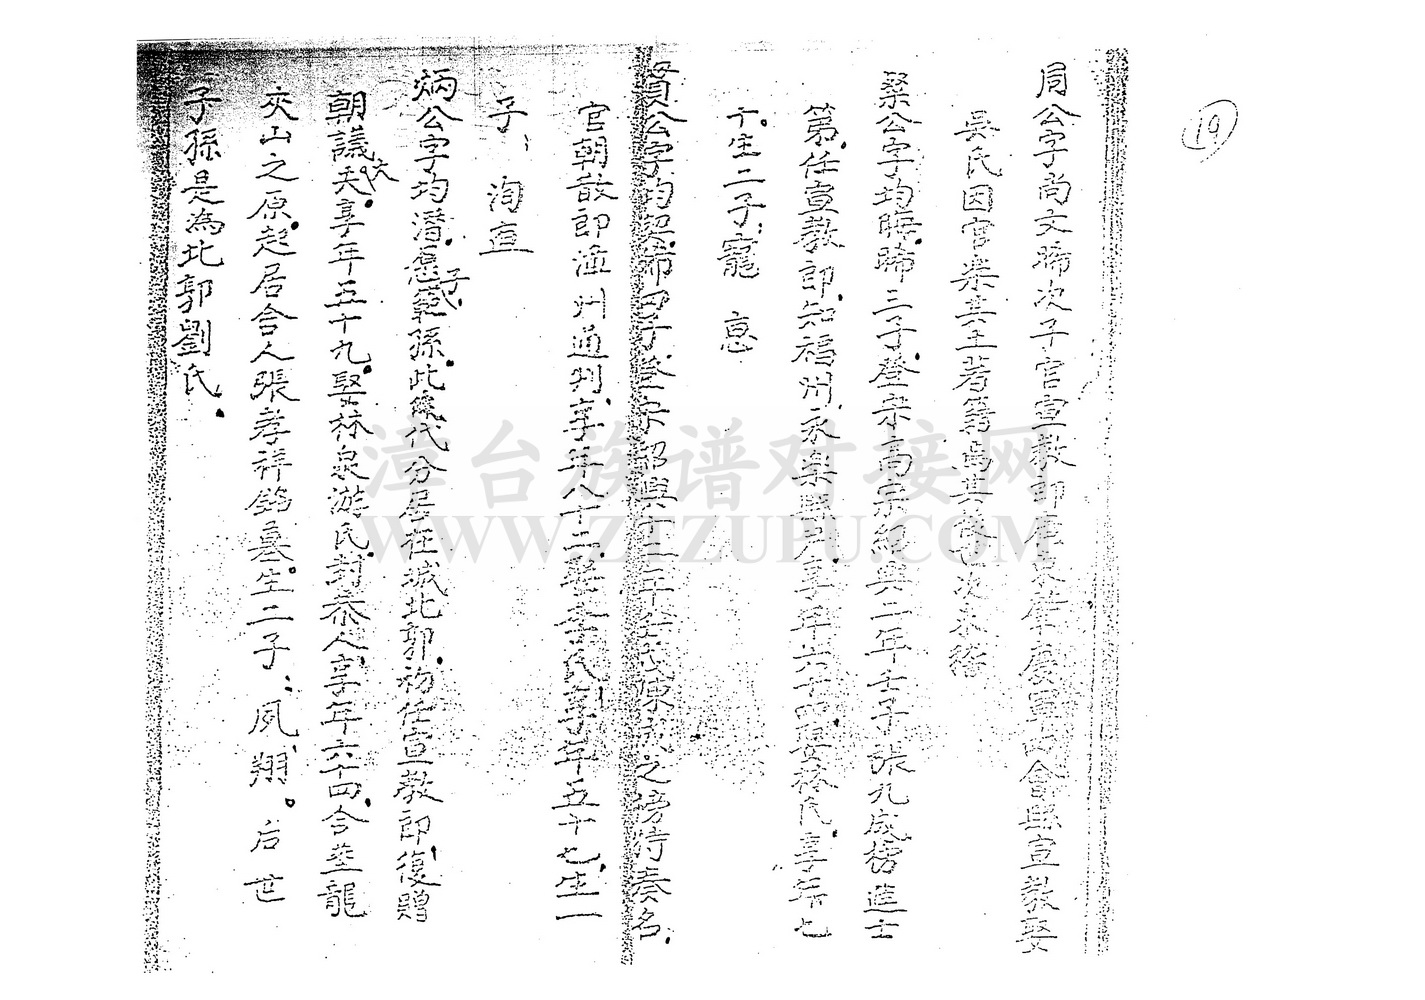 19
同公字尚文晞次子官宣教郎廣東肇慶軍四會縣宣教娶
吳氏因官樂其土著籍焉其後次未稽
粲公字均晦晞三子登宋高宗紹興二年壬子張九成榜進士
第任宣教郎知福州永樂縣尹享年六十四娶林氏享年七
十生二子寵 惪
賁公字均契晞四子登宋紹興十二年壬戌陳誠之榜特奏名
官朝散郎 州通判享年八十二娶李氏享年五十七生一
子 洵直
炳公字均潛憑子範孫此條代分居在城北郭初任宣教郎復贈
朝議大夫享年五十九娶林泉游氏封恭人享年六十四合葬龍
夾山之原起居合人張孝祥銘墓生二子 夙翔 后世
子孫是為北郭劉氏
漳台族谱对接网
WWW.ZTZUPU.COM